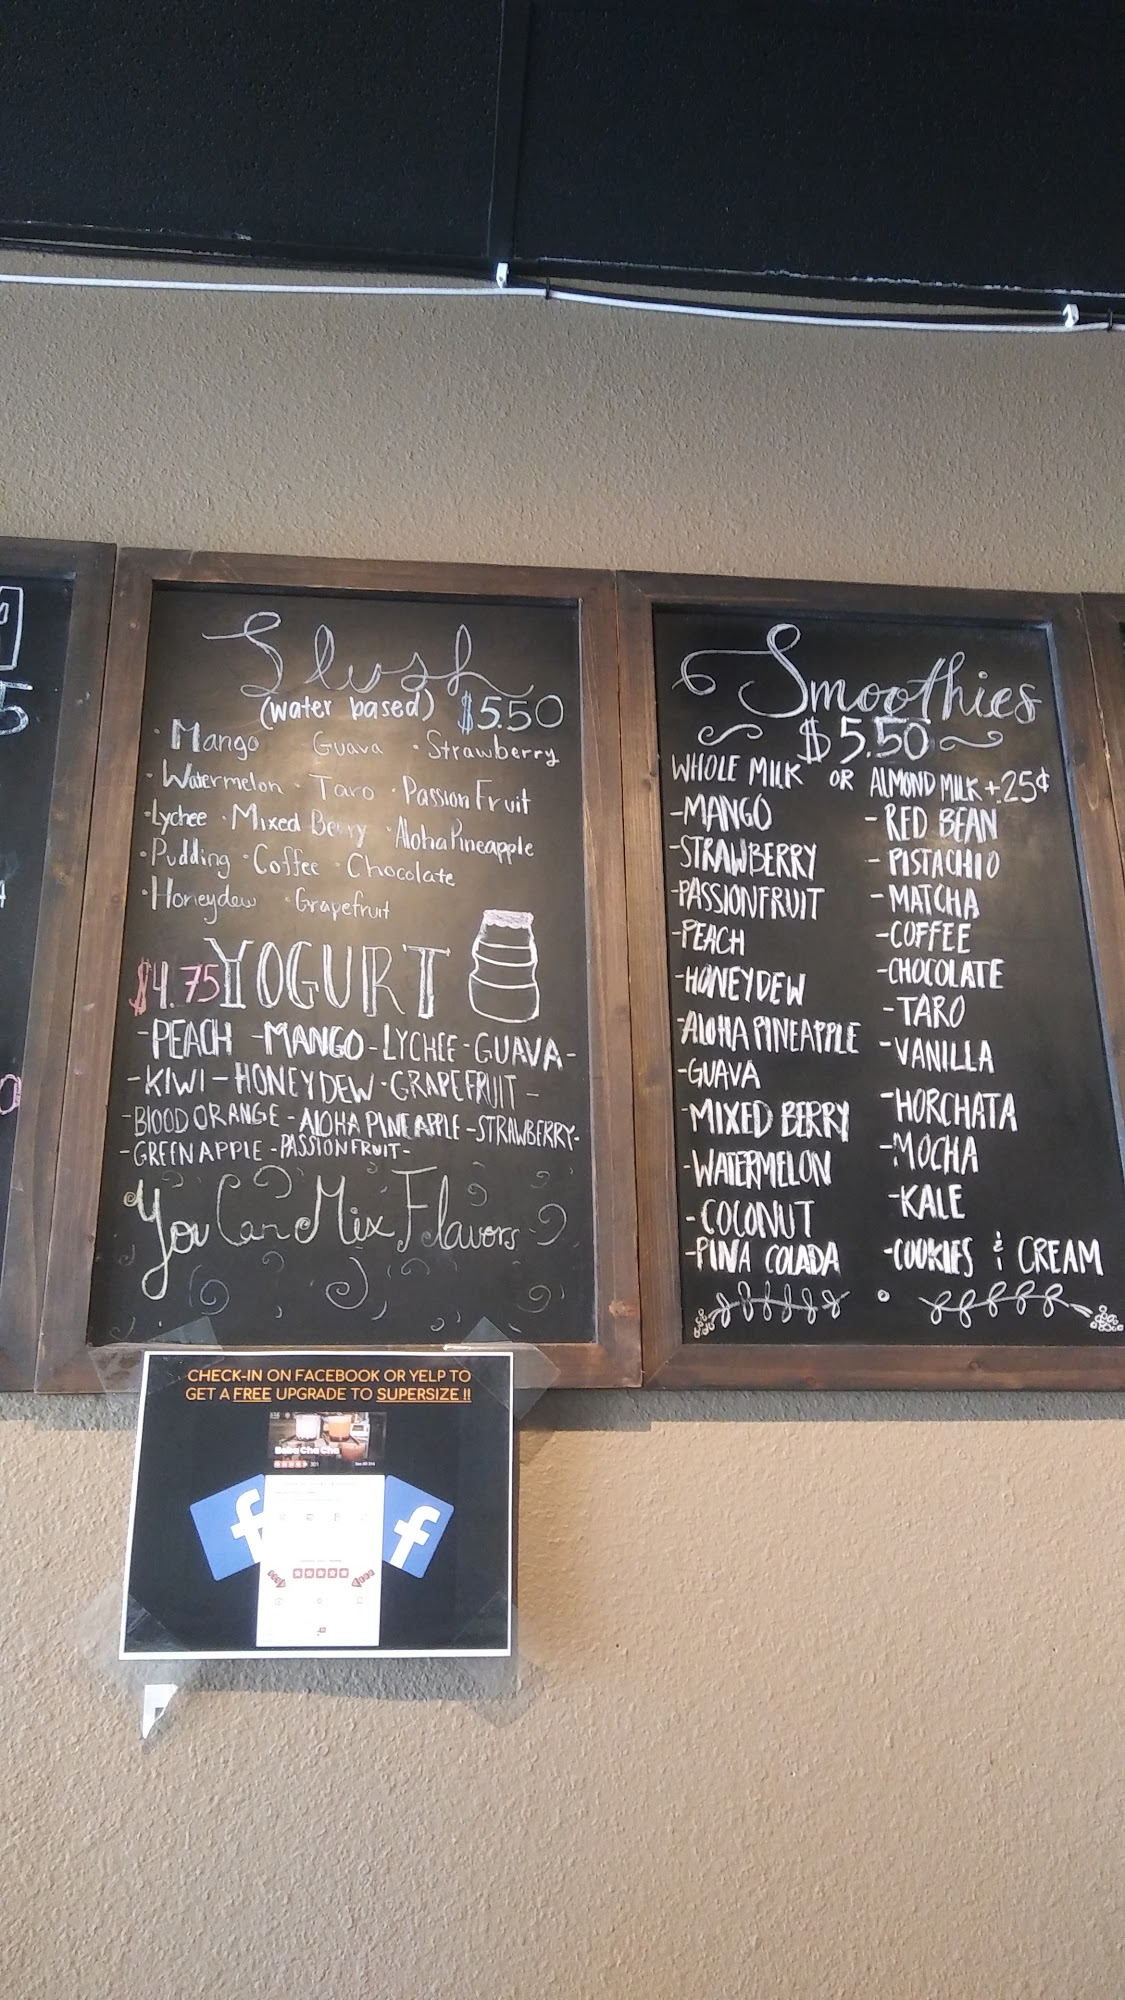 Slush
(water based) $5.50
· Mango Guava · Strawberry
· Watermelon · Taro · Passion Fruit
· Lychee · Mixed Berry · Aloha Pineapple
· Pudding · Coffee · Chocolate
· Honeydew · Grapefruit
$4.75 YOGURT
- PEACH - MANGO - LYCHEE - GUAVA -
- KIWI - HONEYDEW - GRAPEFRUIT -
- BLOOD ORANGE - ALOHA PINEAPPLE - STRAWBERRY -
- GREEN APPLE - PASSIONFRUIT -
You Can Mix Flavors
Smoothies
$5.50
WHOLE MILK OR ALMOND MILK +.25¢
- MANGO
- STRAWBERRY
- PASSIONFRUIT
- PEACH
- HONEYDEW
- ALOHA PINEAPPLE
- GUAVA
- MIXED BERRY
- WATERMELON
- COCONUT
- PINA COLADA
- RED BEAN
- PISTACHIO
- MATCHA
- COFFEE
- CHOCOLATE
- TARO
- VANILLA
- HORCHATA
- MOCHA
- KALE
- COOKIES & CREAM
CHECK-IN ON FACEBOOK OR YELP TO
GET A FREE UPGRADE TO SUPERSIZE !!
Boba Cha Cha
301
f f